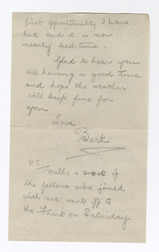 that opportunity I have
had and it is now
nearly bed time.
Glad to hear you
are having a good time
and hope the weather
will keep fine for
you
Love
Bert
P.S. Mills & most of
the fellows who joined
with me went off to
the Front on Saturday